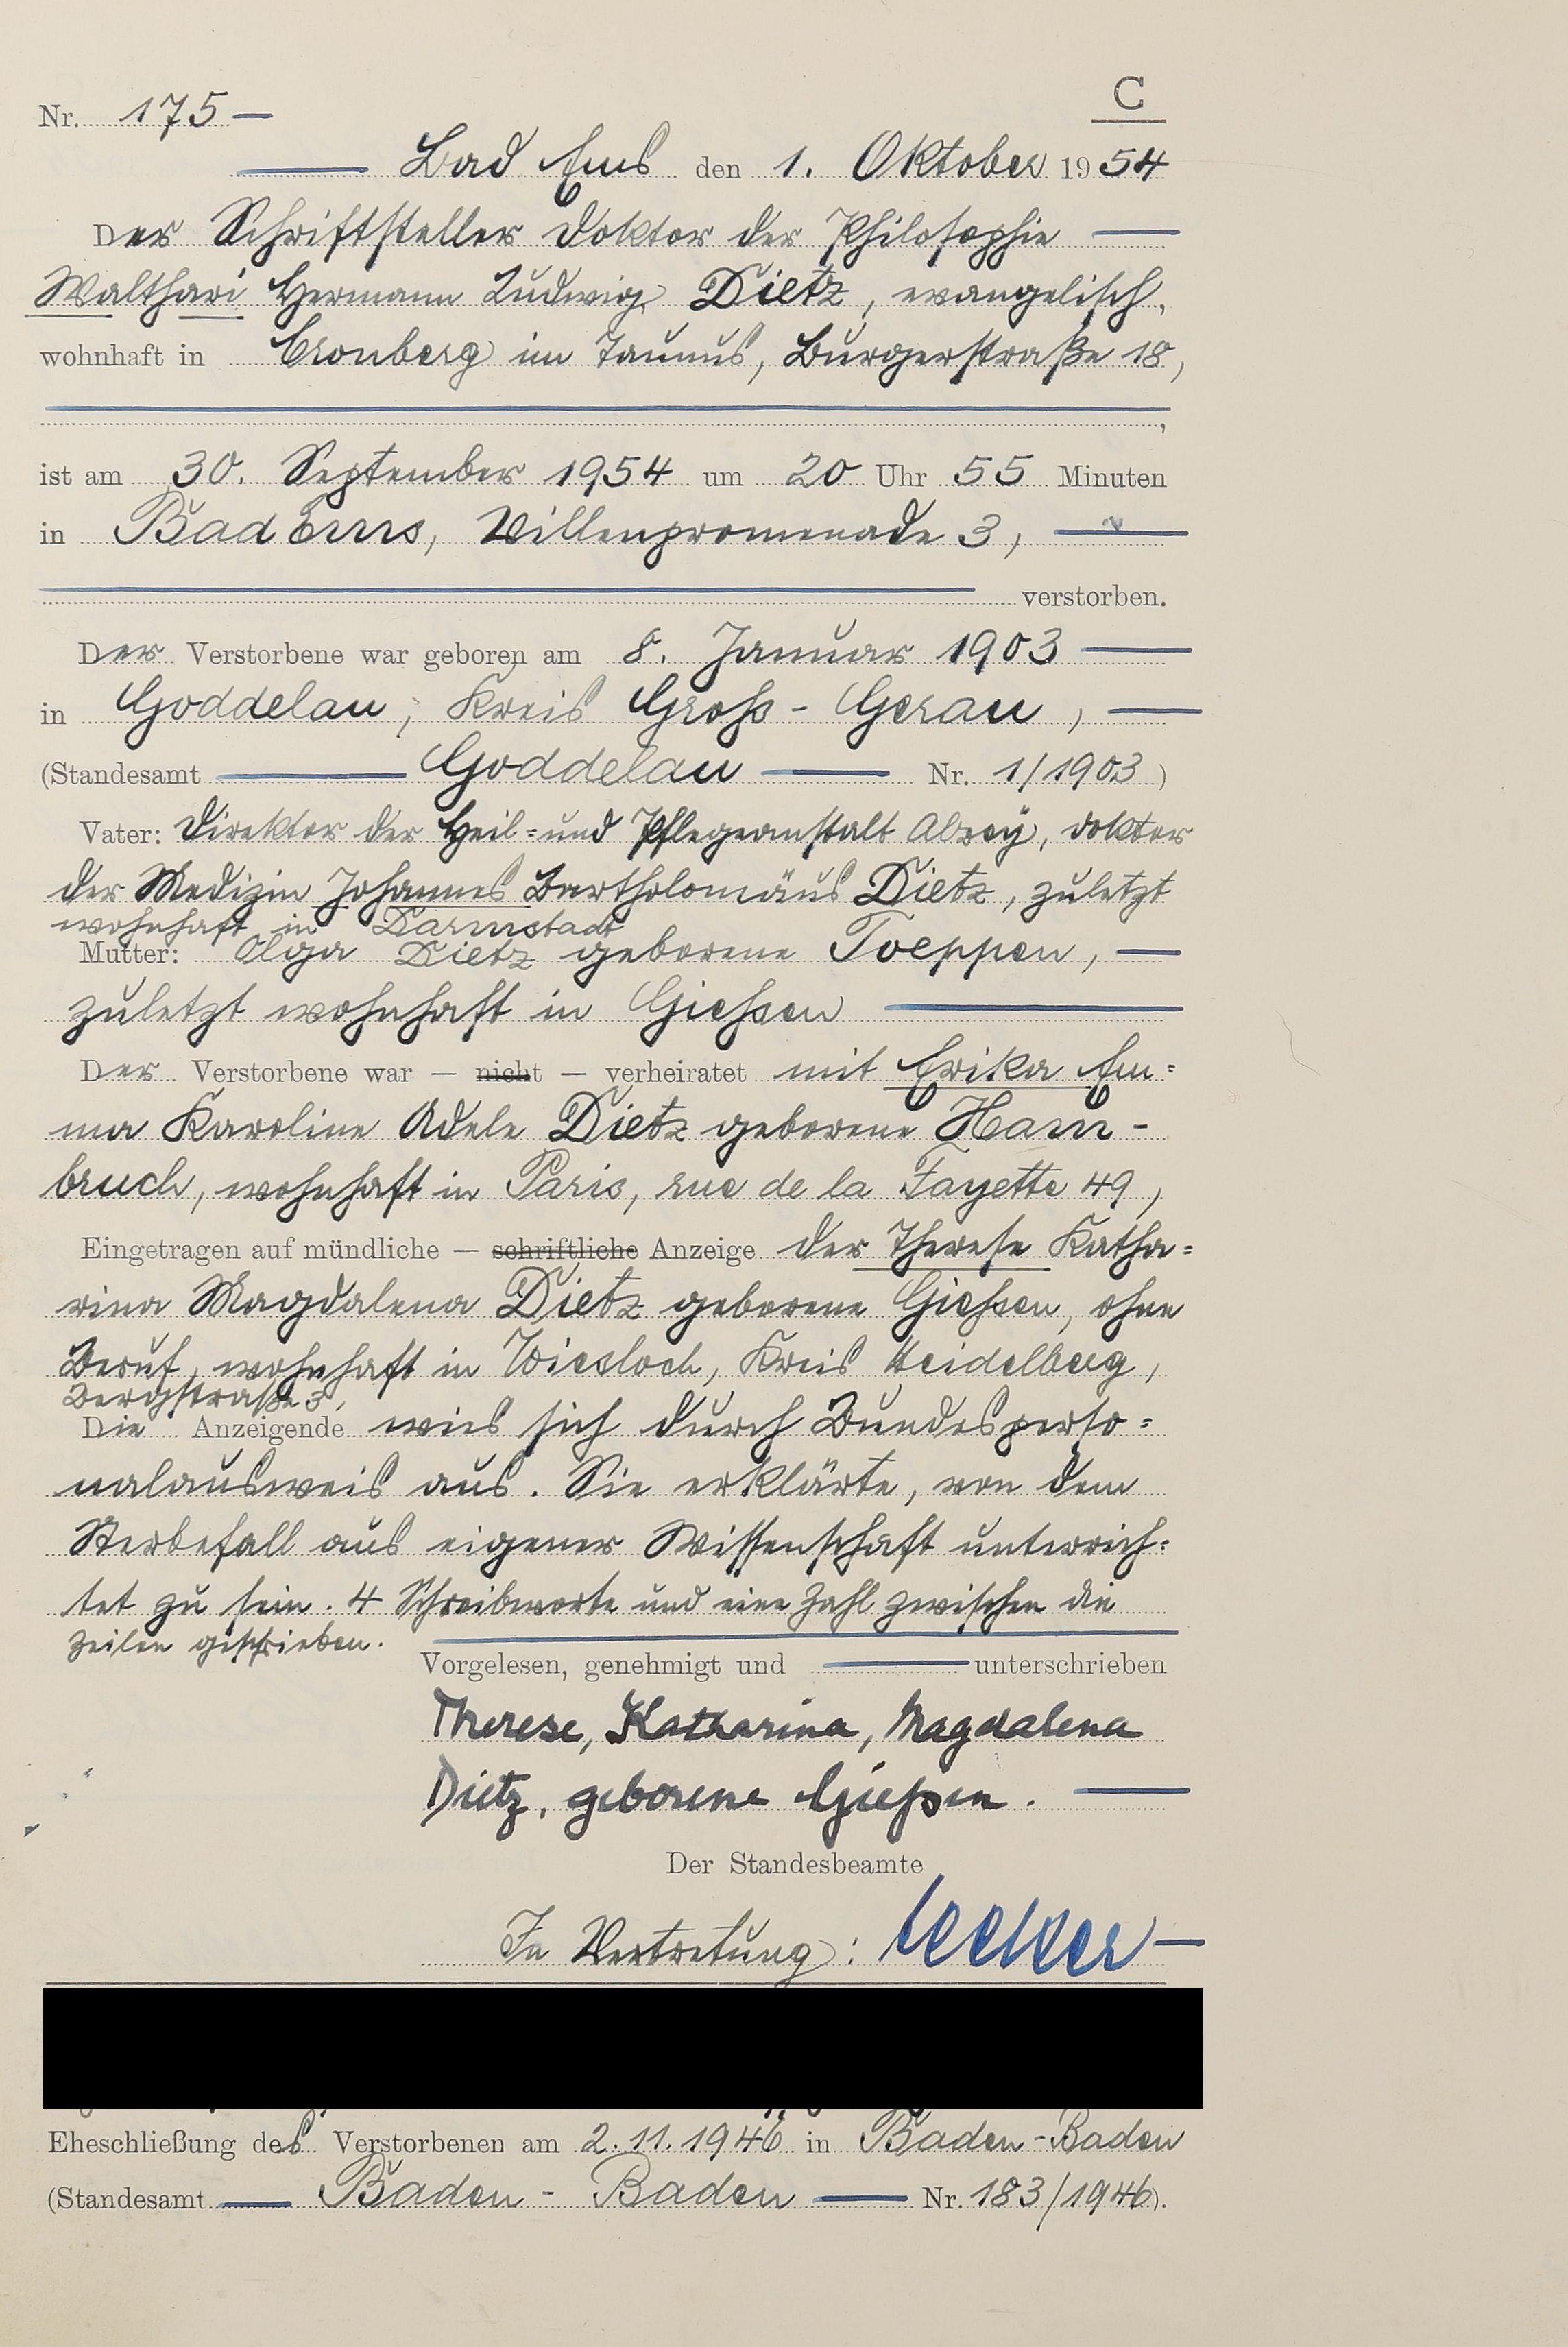 C
Nr. 175
Bad Ems den 1. Oktober 1954
Der Schriftsteller Doktor der Philosophie
Walthari Hermann Ludwig Dietz, evangelisch,
wohnhaft in Cronberg im Taunus, Burgerstraße 18,
ist am 30. September 1954 um 20 Uhr 55 Minuten
in Bad Ems, Villenpromenade 3,
verstorben.
Der Verstorbene war geboren am 8. Januar 1903
in Goddelau, Kreis Groß-Gerau,
(Standesamt Goddelau Nr. 1/1903)
Vater: Direktor der Heil- und Pflegeanstalt Alzey, Doktor
der Medizin Johannes Bartholomäus Dietz, zuletzt
wohnhaft in Darmstadt
Mutter: Olga Dietz geborene Toeppen,
zuletzt wohnhaft in Gießen
Der Verstorbene war — nicht — verheiratet mit Erika Em=
ma Karoline Adele Dietz geborene Ham-
bruch, wohnhaft in Paris, rue de la Fayette 49,
Eingetragen auf mündliche — schriftliche Anzeige der Therese Katha=
rina Magdalena Dietz geborene Gießen, ohne
Beruf, wohnhaft in Wiesloch, Kreis Heidelberg,
Bergstraße 3,
Die Anzeigende wies sich durch Bundesperso=
nalausweis aus. Sie erklärte, von dem
Sterbefall aus eigener Wissenschaft unterrich=
tet zu sein. 4 Schreibworte und eine Zahl zwischen die
Zeilen geschrieben.
Vorgelesen, genehmigt und unterschrieben
Therese, Katharina, Magdalena
Dietz, geborene Gießen.
Der Standesbeamte
In Vertretung:
Eheschließung des Verstorbenen am 2.11.1946 in Baden-Baden
(Standesamt Baden-Baden Nr. 183/1946).